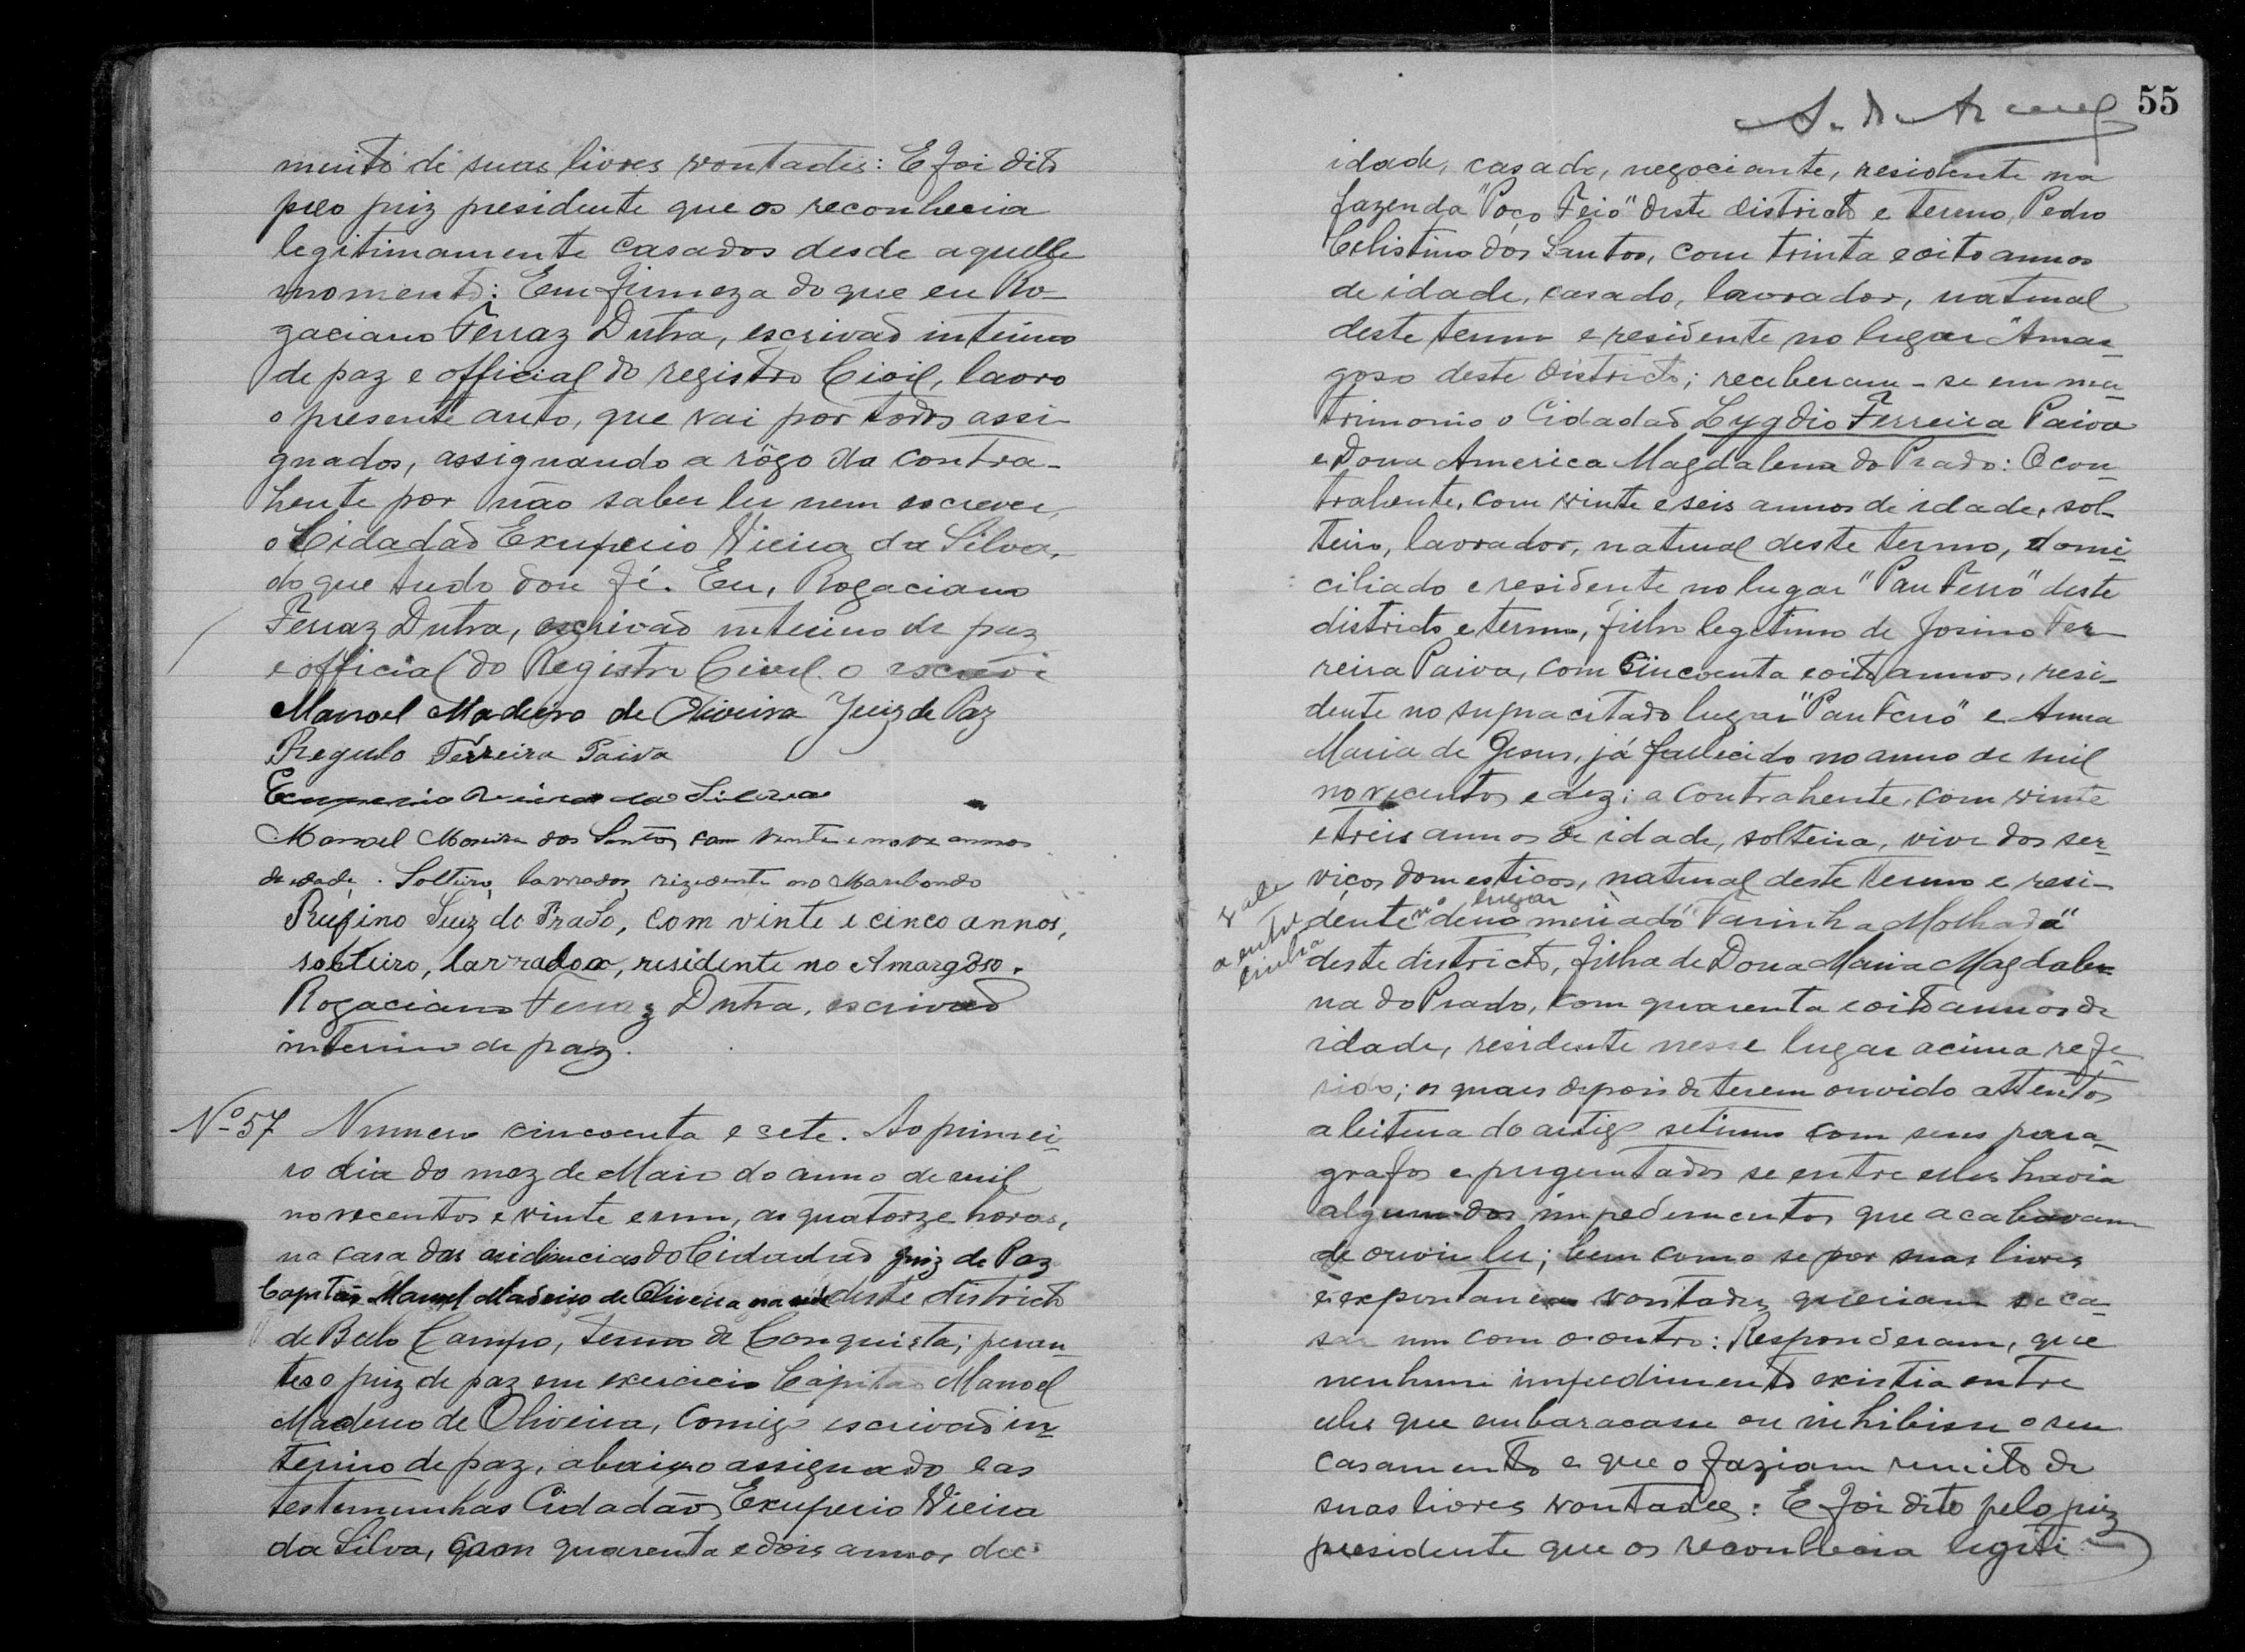 mento de suas livres vontades: E foi dito
pelo juiz presidente que os reconhecia
legitimamente casados desde aquelle
momento: Em firmeza do que eu Ro-
gaciano Ferraz Dutra, escrivaõ interino
de paz e official do registro Civil, lavro
o presente auto, que vai por todos assi-
gnados, assignando a rôgo da contra-
hente por não saber ler nem escrever,
o Cidadaõ Exuperio Vieira da Silva,
do que tudo dou fé. Eu, Rogaciano
Ferraz Dutra, escrivaõ interino de paz
e official do Registro Civil o escrevi
Manoel Madeiro de Oliveira Juiz de Paz
Regulo Ferreira Paiva
Exuperio Vieira da Silva
Manoel Moreira dos Santos com vinte e nove annos
de edade. Solteiro, lavrador, rezidente no Maribondo
Rufino Luiz do Prado, com vinte e cinco annos,
solteiro, lavrador, residente no Amargôso.
Rogaciano Ferraz Dutra, escrivaõ
interino de paz.
Nº 57 Numero cincoenta e sete. Ao primei-
ro dia do mez de Maio do anno de mil
novecentos e vinte e um, as quatorze horas,
na casa das audiencias do Cidadaõ Juiz de Paz
Capitaõ Manoel Madeiro de Oliveira na séde deste districto
de Bello Campo, termo de Conquista; peran-
te o juiz de paz em exercicio Capitaõ Manoel
Madeiro de Oliveira, comigo escrivaõ in-
terino de paz, abaixo assignado e as
testemunhas Cidadãos Exuperio Vieira
da Silva, com quarenta e dois annos de
55
idade, casado, negociante, residente na
fazenda "Poço Feio" deste districto e termo, Pedro
Celistino dos Santos, com trinta e oito annos
de idade, casado, lavrador, natural
deste termo e residente no lugar "Amar-
goso deste districto; receberam-se em ma-
trimonio o Cidadaõ Lygdio Ferreira Paiva
e Dona America Magdalena do Prado: O con-
trahente, com vinte e seis annos de idade, sol-
teiro, lavrador, natural deste termo, domi-
ciliado e residente no lugar "Pau Ferro" deste
districto e termo, filho legitimo de Josino Fer-
reira Paiva, com cincoenta e oito annos, resi-
dente no supracitado lugar "Pau Ferro" e Anna
Maria de Jesus, já fallecido no anno de mil
novecentos e dez; a contrahente, com vinte
e treis annos de idade, solteira, vive dos ser-
viços domesticos, natural deste termo e resi-
no lugar
dente denominado "Farinha Molhada"
vale
a entre
linha
deste districto, filha de Dona Maria Magdale-
na do Prado, com quarenta e oito annos de
idade, residente nesse lugar acima refe-
rido; os quaes depois de terem ouvido attentos
a leitura do artigo setimo com seus para-
grafos e perguntados se entre elles havia
algum dos impedimentos que acabavam
de ouvir ler; bem como se por suas livres
e expontaneas vontades queriam se ca-
sar um com o outro: Responderam, que
nenhum impedimento existia entre
elles que embaracasse ou inhibisse o seu
casamento e que o faziam muito de
suas livres vontades: E foi dito pelo juiz
presidente que os reconhecia legiti-